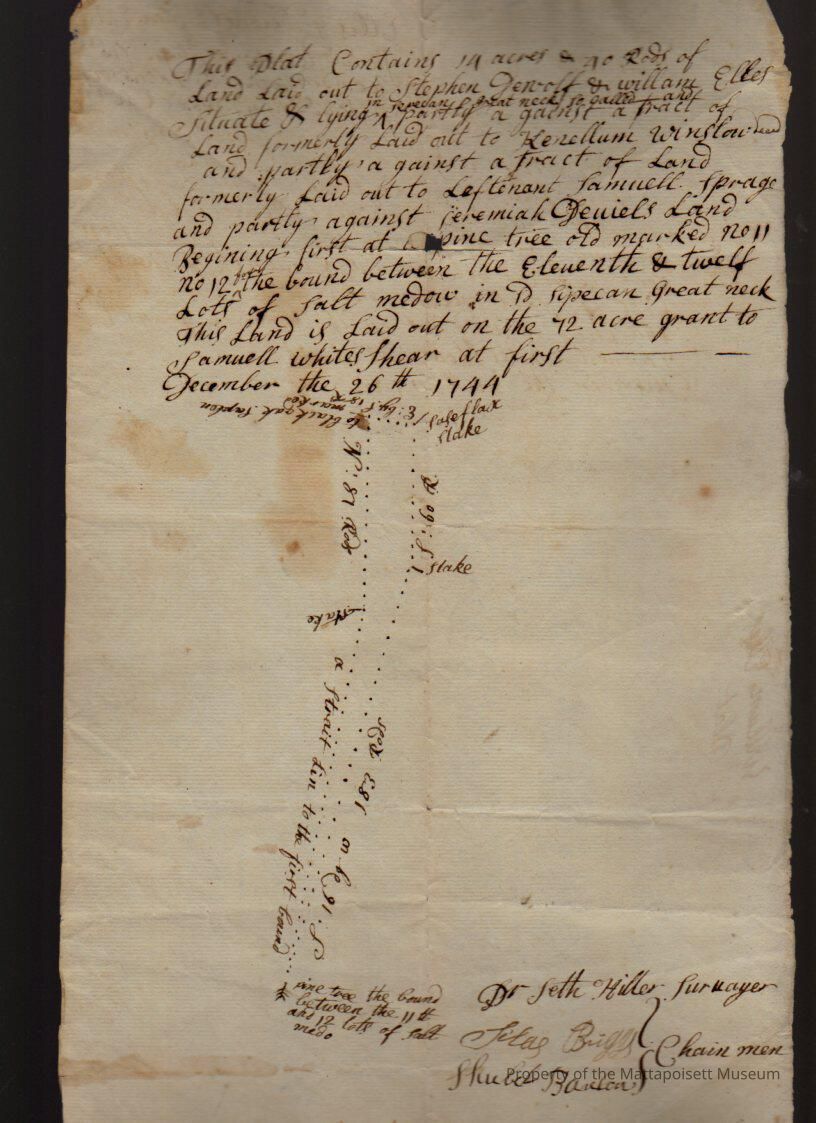 This Plat Contains 14 acres & 40 Rods of
Land Laid out to Stephen Dewolf & willam Elles
in Sepecan great neck so called and
Situate & lying partly a gainst a Tract of
Land formerly Laid out to Kenellum Winslow
and partly a gainst a Tract of Land
formerly Laid out to Leftenant Samuell Sprage
and partly against Jeremiah Deuiels Land
Begining first at pine tree old marked no 11
no 12 the bound between the Eleuenth & twelf
Lots of Salt medow in Sd Sipecan Great neck
This Land is Laid out on the 72 acre grant to
Samuell whites Shear at first
December the 26th 1744
to black oak Saplon
marked
E
Sasefrax
Stake
N: 87 Rod
R 60: S
Stake
Stake
183 Rods
a Strait Lin to the first bound
S: 19
pine tree the bound
between the 11th
and 12 lots of Salt
medo
Dr Seth Hiller Suruayer
Silas Briggs
Chain men
Shubel Barlow
Property of the Mattapoisett Museum